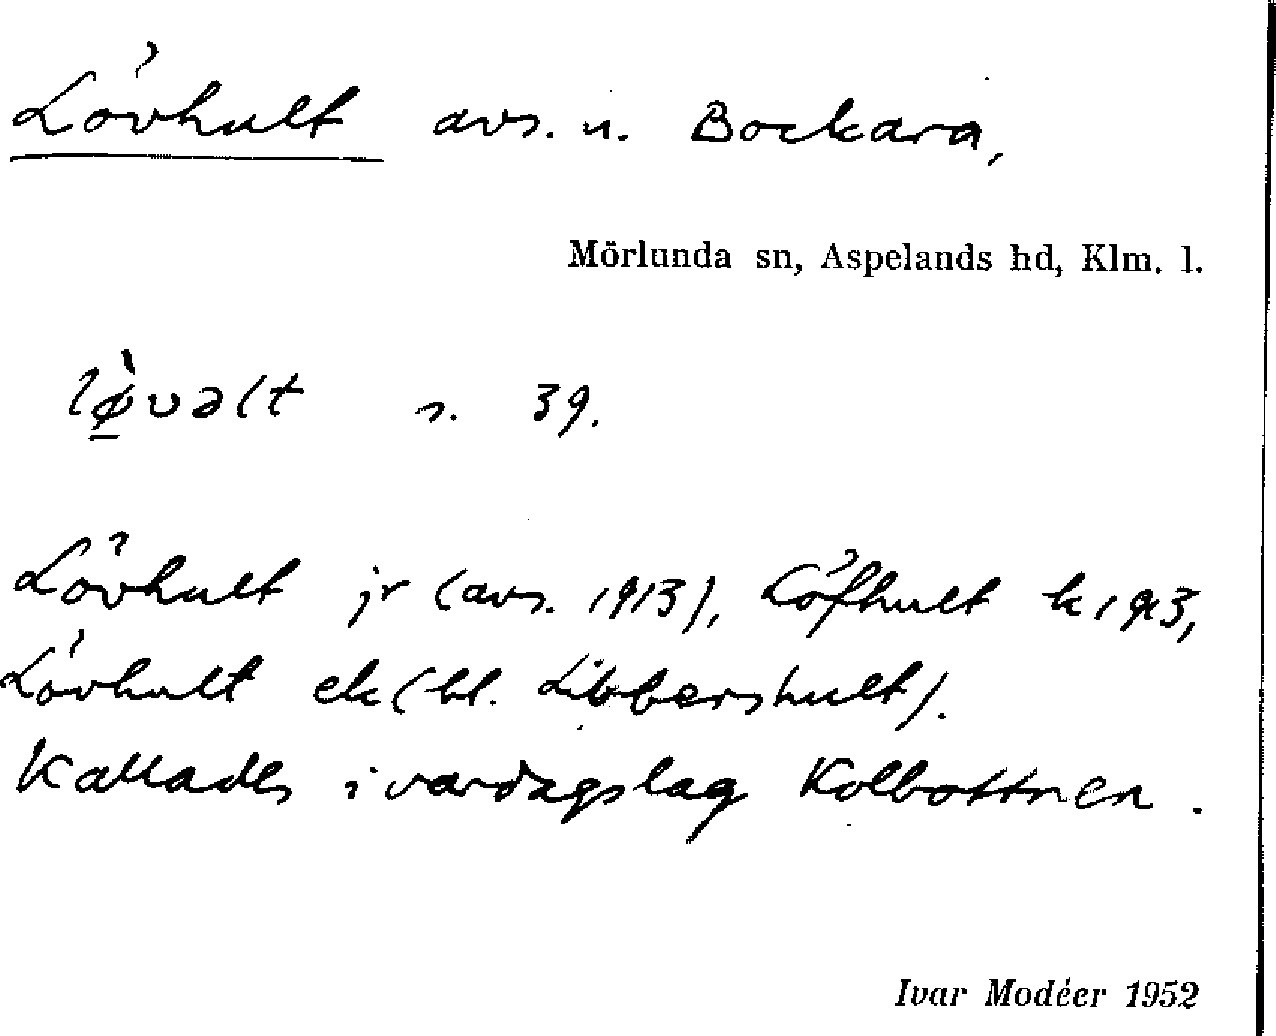 Lövhult avs. u. Bockara,
Mörlunda sn, Aspelands hd, Klm. l.
lø̀vəlt s. 39.
Lövhult jr (avs. 1913), Löfhult k 1913,
Lövhult ek (bl. Libbershult).
Kallades i vardagslag Kolbottnen.
Ivar Modéer 1952